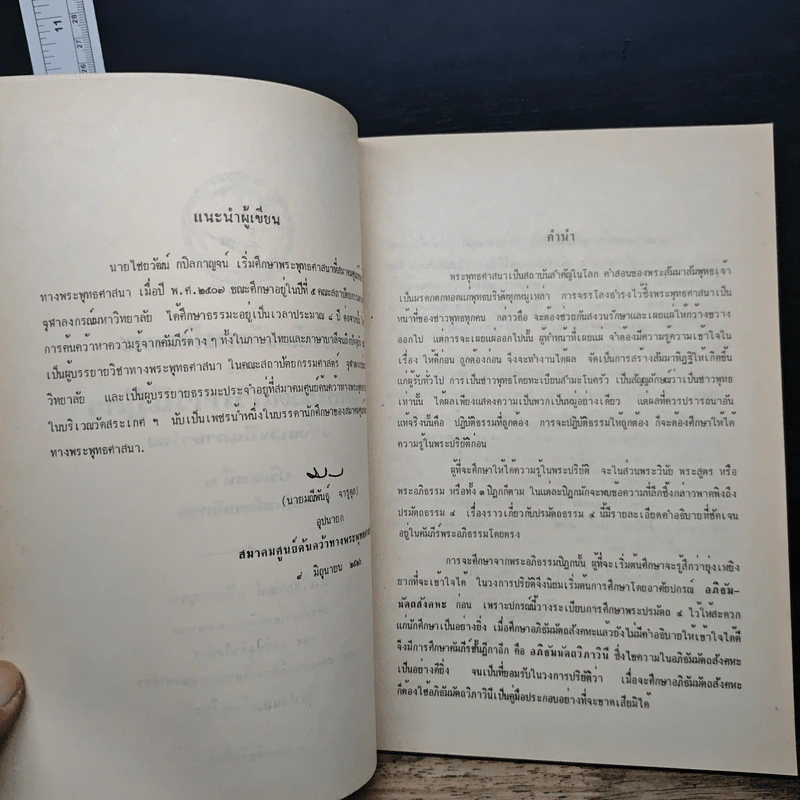 11
28
27
26
แนะนำผู้เขียน
นายไชยวัฒน์ กปิลกาญจน์ เริ่มศึกษาพระพุทธศาสนาที่สมาคมศูนย์
ทางพระพุทธศาสนา เมื่อปี พ.ศ.๒๕๐๗ ขณะศึกษาอยู่ในปีที่ ๕ คณะสถาปัตย
จุฬาลงกรณ์มหาวิทยาลัย ได้ศึกษาธรรมะอยู่เป็นเวลาประมาณ ๘ ปี
การค้นคว้าหาความรู้จากคัมภีร์ต่าง ๆ ทั้งในภาษาไทยและภาษาบาลีจนถึงปัจจุบัน
เป็นผู้บรรยายวิชาทางพระพุทธศาสนา ในคณะสถาปัตยกรรมศาสตร์ จุฬาลง
วิทยาลัย และเป็นผู้บรรยายธรรมะประจำอยู่ที่สมาคมศูนย์ค้นคว้าทางพระพุทธ
ในบริเวณวัดสระเกศ ฯ นับเป็นเพชรน้ำหนึ่งในบรรดานักศึกษาของสมาคม
ทางพระพุทธศาสนา.
(นายมณีพันธุ์ จารุดุล)
อุปนายก
สมาคมศูนย์ค้นคว้าทางพระพุทธ
๙ มิถุนายน ๒๕๑๖
คำนำ
พระพุทธศาสนาเป็นสถาบันสำคัญในโลก คำสอนของพระสัมมาสัมพุทธเจ้า
เป็นมรดกตกทอดแก่พุทธบริษัททุกหมู่เหล่า การจรรโลงธำรงไว้ซึ่งพระพุทธศาสนาเป็น
หน้าที่ของชาวพุทธทุกคน กล่าวคือ จะต้องช่วยกันสงวนรักษาและเผยแผ่ให้กว้างขวาง
ออกไป แต่การจะเผยแผ่ออกไปนั้น ผู้ทำหน้าที่เผยแผ่ จำต้องมีความรู้ความเข้าใจใน
เรื่อง ให้ดีก่อน ถูกต้องก่อน จึงจะทำงานได้ผล จัดเป็นการสร้างสัมมาทิฏฐิให้เกิดขึ้น
แก่ผู้รับทั่วไป การเป็นชาวพุทธโดยทะเบียนสำมะโนครัว เป็นสัญลักษณ์ว่าเป็นชาวพุทธ
เท่านั้น ได้ผลเพียงแสดงความเป็นพวกเป็นหมู่อย่างเดียว แต่ผลที่ควรปรารถนาอัน
แท้จริงนั้นคือ ปฏิบัติธรรมที่ถูกต้อง การจะปฏิบัติธรรมให้ถูกต้อง ก็จะต้องศึกษาให้ได้
ความรู้ในพระปริยัติก่อน
ผู้ที่จะศึกษาให้ได้ความรู้ในพระปริยัติ จะในส่วนพระวินัย พระสูตร หรือ
พระอภิธรรม หรือทั้ง ๓ ปิฎกก็ตาม ในแต่ละปิฎกมักจะพบข้อความที่ลึกซึ้งกล่าวพาดพิงถึง
ปรมัตถธรรม ๔ เรื่องราวเกี่ยวกับปรมัตถธรรม ๔ นี้มีรายละเอียดคำอธิบายที่ชัดเจน
อยู่ในคัมภีร์พระอภิธรรมโดยตรง
การจะศึกษาจากพระอภิธรรมปิฎกนั้น ผู้ที่จะเริ่มต้นศึกษาจะรู้สึกว่ายุ่งเหยิง
ยากที่จะเข้าใจได้ ในวงการปริยัติจึงนิยมเริ่มต้นการศึกษาโดยอาศัยปกรณ์ อภิธัม-
มัตถสังคหะ ก่อน เพราะปกรณ์นี้วางระเบียบการศึกษาพระปรมัตถ ๔ ไว้ให้สะดวก
แก่นักศึกษาเป็นอย่างยิ่ง เมื่อศึกษาอภิธัมมัตถสังคหะแล้วยังไม่มีคำอธิบายให้เข้าใจได้ดี
จึงมีการศึกษาคัมภีร์ชั้นฎีกาอีก คือ อภิธัมมัตถวิภาวินี ซึ่งไขความในอภิธัมมัตถสังคหะ
เป็นอย่างดียิ่ง จนเป็นที่ยอมรับในวงการปริยัติว่า เมื่อจะศึกษาอภิธัมมัตถสังคหะ
ก็ต้องใช้อภิธัมมัตถวิภาวินีเป็นคู่มือประกอบอย่างที่จะขาดเสียมิได้